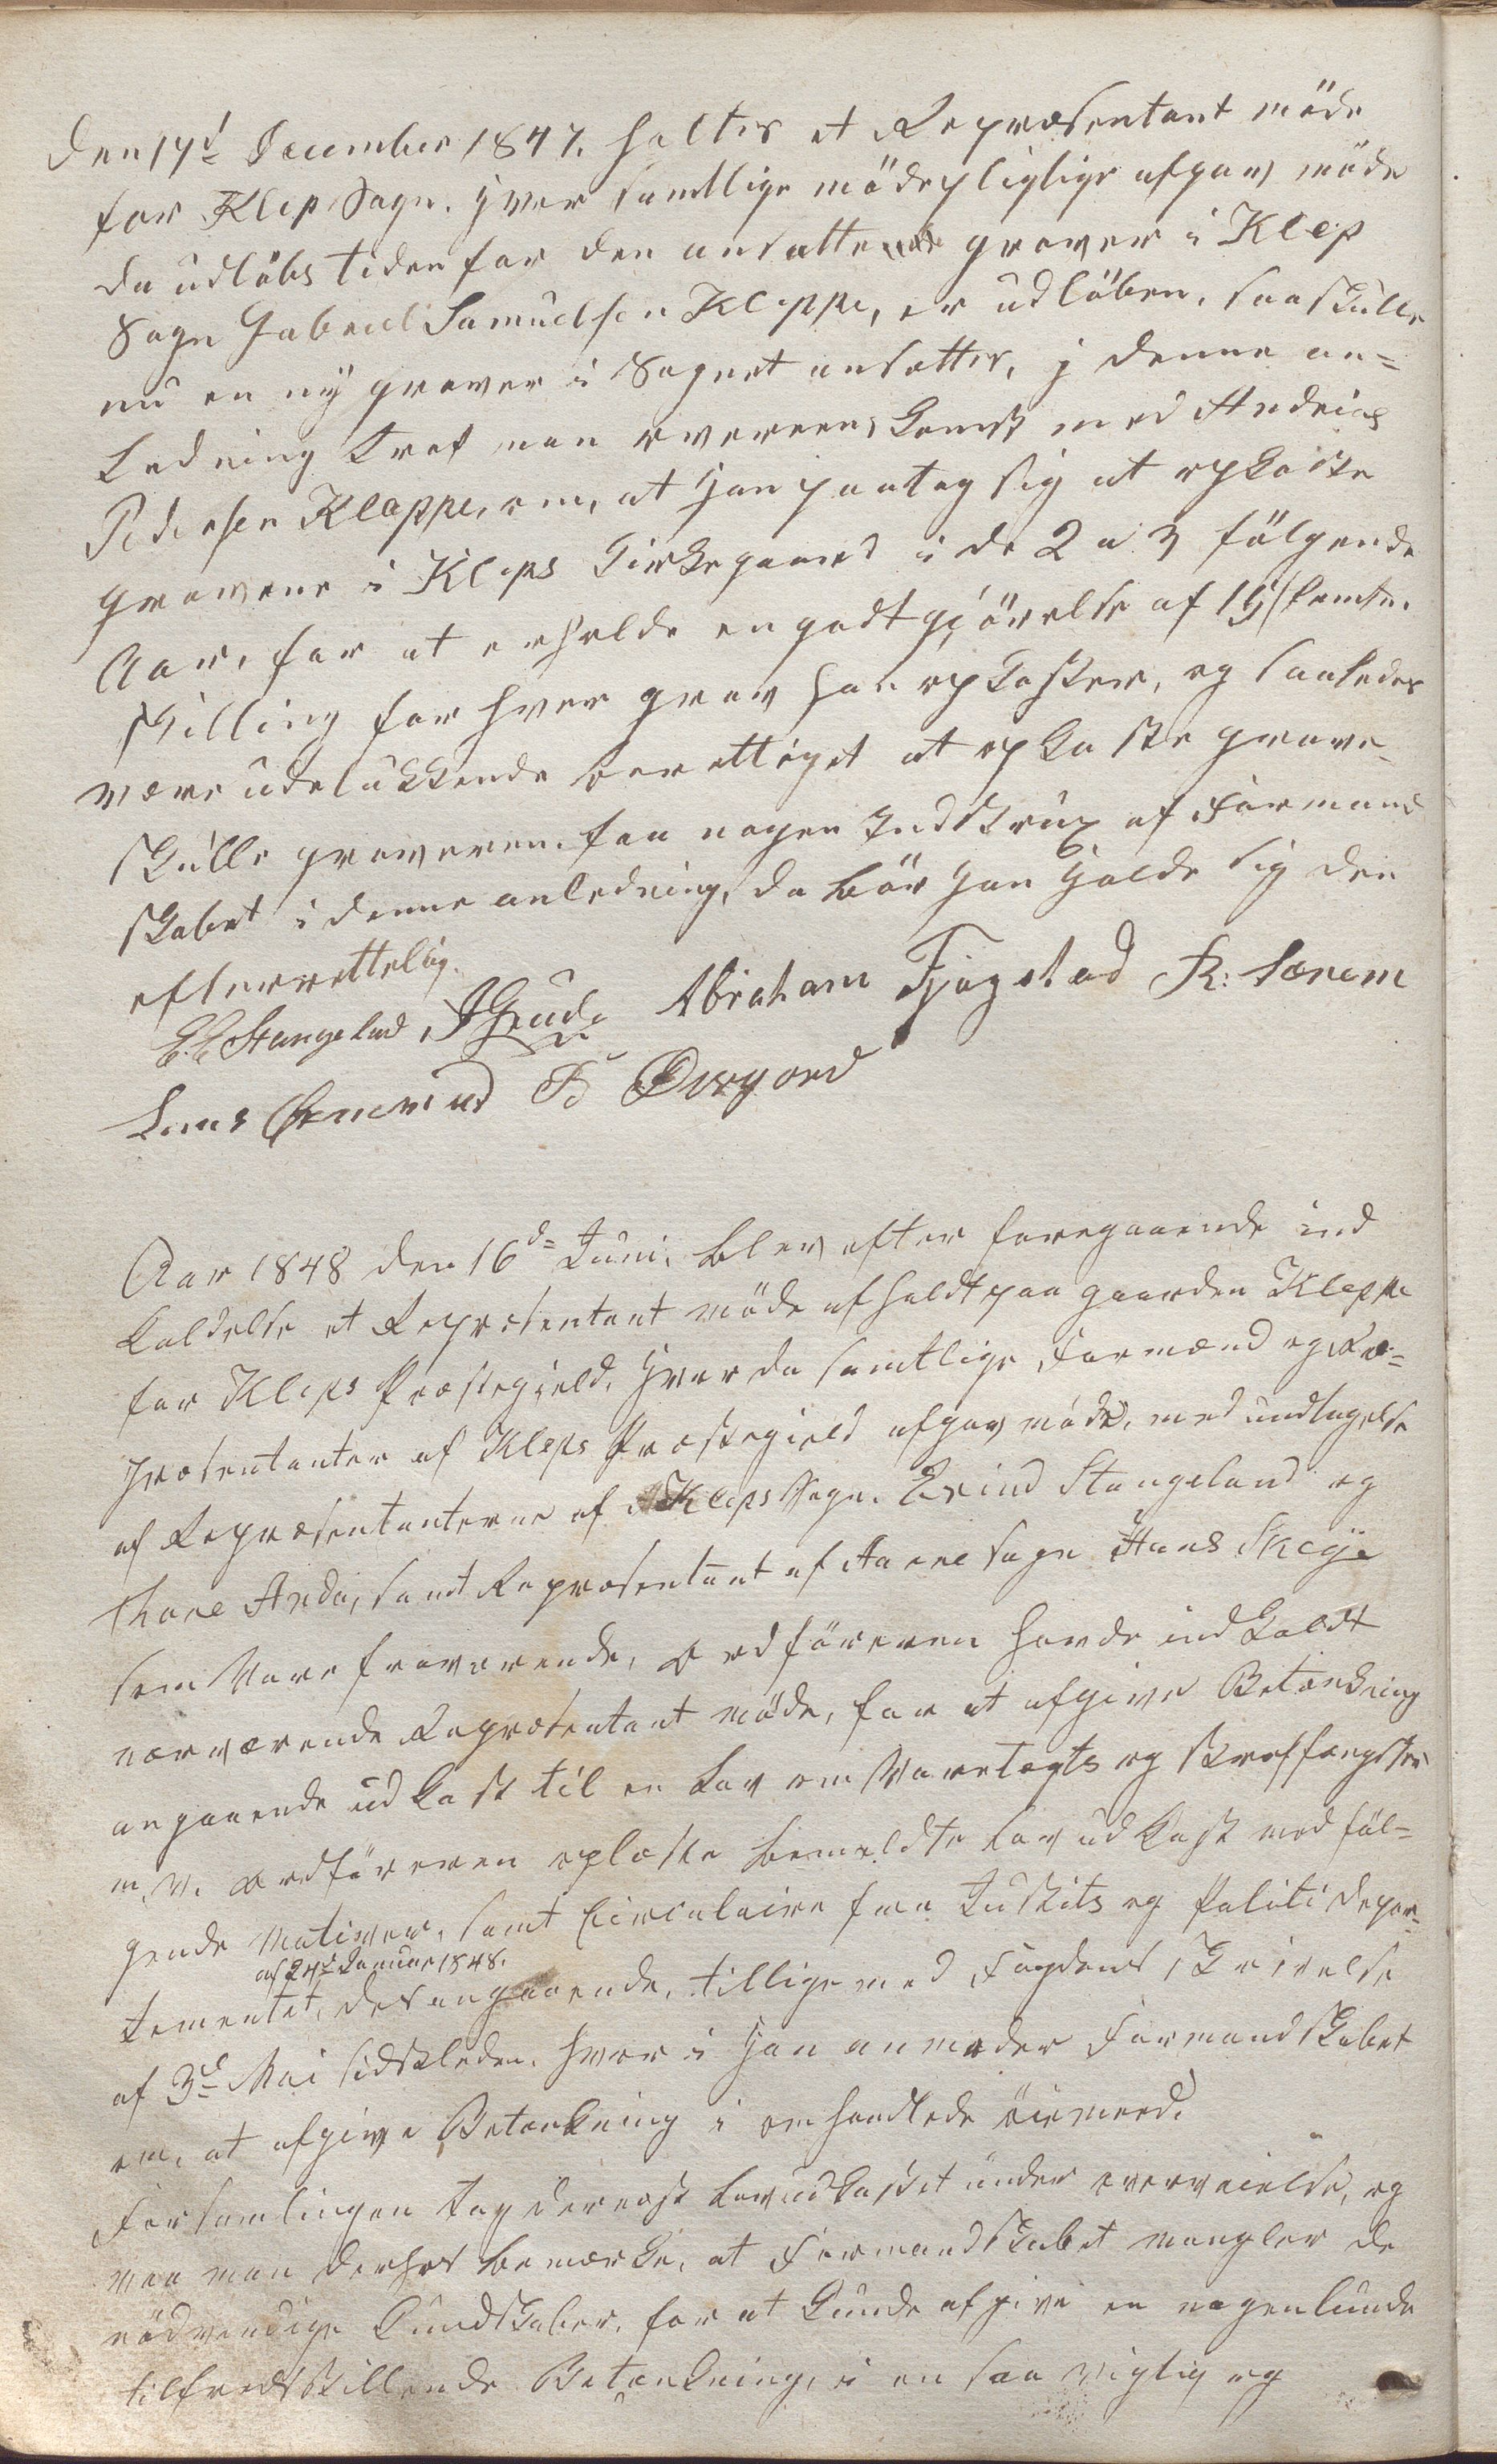 Den 17d December 1847. holtes et Repræsentant möde
for Klep Sogn. hvor samtlige mödepligtige afgav möde
da udlöbs tiden for den ansatte graver i Klep
Sogn Gabriel Samuelsen Kleppe, er udlöben, saa skulle
nu en ny graver i Sognet ansættes, i denne an=
ledning traf man overeenskomst med Andreas
Pedersen Kleppe, om, at han paatog sig at opkaste
gravene i Kleps Kirkegaard i de 2 a 3 fölgende
Aar, for at erholde en godtgjörelse af 15 femten
skilling for hver grav han opkaster, og saaledes
være udelukkende berettiget at opkaste grave
skulle graveren faa nogen Indstrux af Formand
skabet i denne anledning, da bör han holde sig den
efterrettelig.
E. E. Stangeland, Abraham Fjogstad R: Særem
Lars Braud Öxnevad
Aar 1848 den 16d= Juni, blev efter foregaaende ind
kaldelse et Repræsentant möde afholdt paa gaarden Kleppe
for Kleps Præstegjeld, hvor da samtlige Formænd og Re=
præsentanter af Kleps Præstegield afgav möde, med undtagelse
af Repræsentanterne af Kleps Sogn. Eivind Stangeland og
Thore Anda, samt Repræsentant af Haaree sogn Hans Skeije
som Vare fraværende, Ordföreren havde indkaldt
nærværende Repræsentant möde, for at afgive Betænkning
angaaende udkast til en Lov om Varetægts og straffængsler
m. v. Ordföreren oplæste bemeldte Lov udkast med föl=
gende Motiver, samt Circulaire fra Justits og Politi depar=
af 24d Januar 1848.
tementet, desangaaende, tillige med Fogdens skrivelse
af 3d Mai sidstleden. hvor i han anmoder Formandskabet
om, at afgive Betænkning i omhandlede öiemed.
Forsamlingen tog dernæst Lovudkastet under overveielse, og
maa man derhos bemærke, at Formandskabet mangler de
nödvendige Kundskaber, for at kunde afgive en nogenlunde
tilfredsstillende Betænkning, i en saa vigtig og